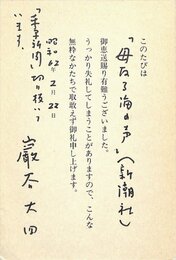 このたびは
「母なる海の声」(新潮社)
御恵送賜り有難うございました。
うっかり失礼してしまうことがありますので、こんな
無粋なかたちで取敢えず御礼申し上げます。
昭和62年2月22日
新聞切り抜いて
います。
巖谷大四